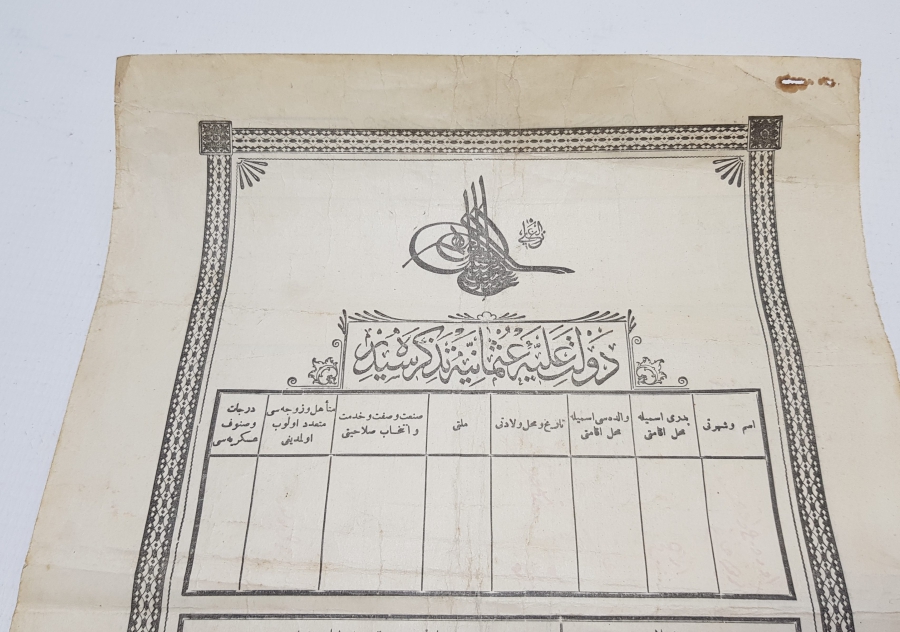 الغازی
دولت علیهٔ عثمانیه تذکره سیدر
اسم وشهرتی
پدری اسمیله محل اقامتی
والده سی اسمیله محل اقامتی
تاریخ ومحل ولادتی
ملتی
صنعت وصفت وخدمت وانتخاب صلاحیتی
متأهل وزوجه سی متعدد اولوب اولمدیغی
درجات وصنوف عسکریه سی